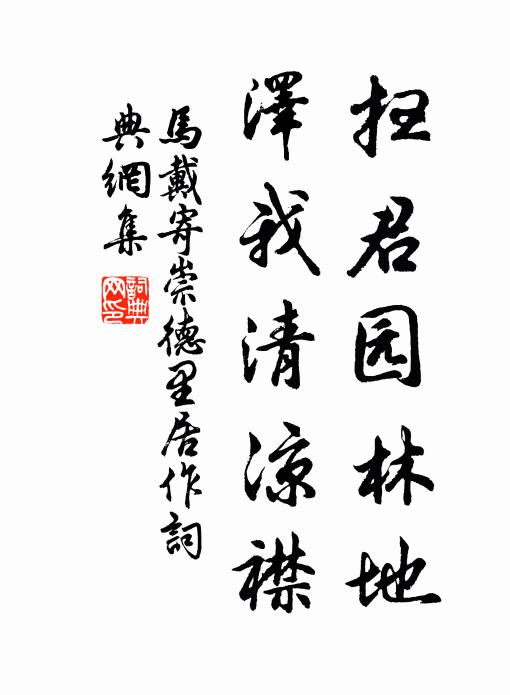 抂君园林地
澤我清凉襟
馬戴寄崇德里居作詞
典網集
詞典
网印